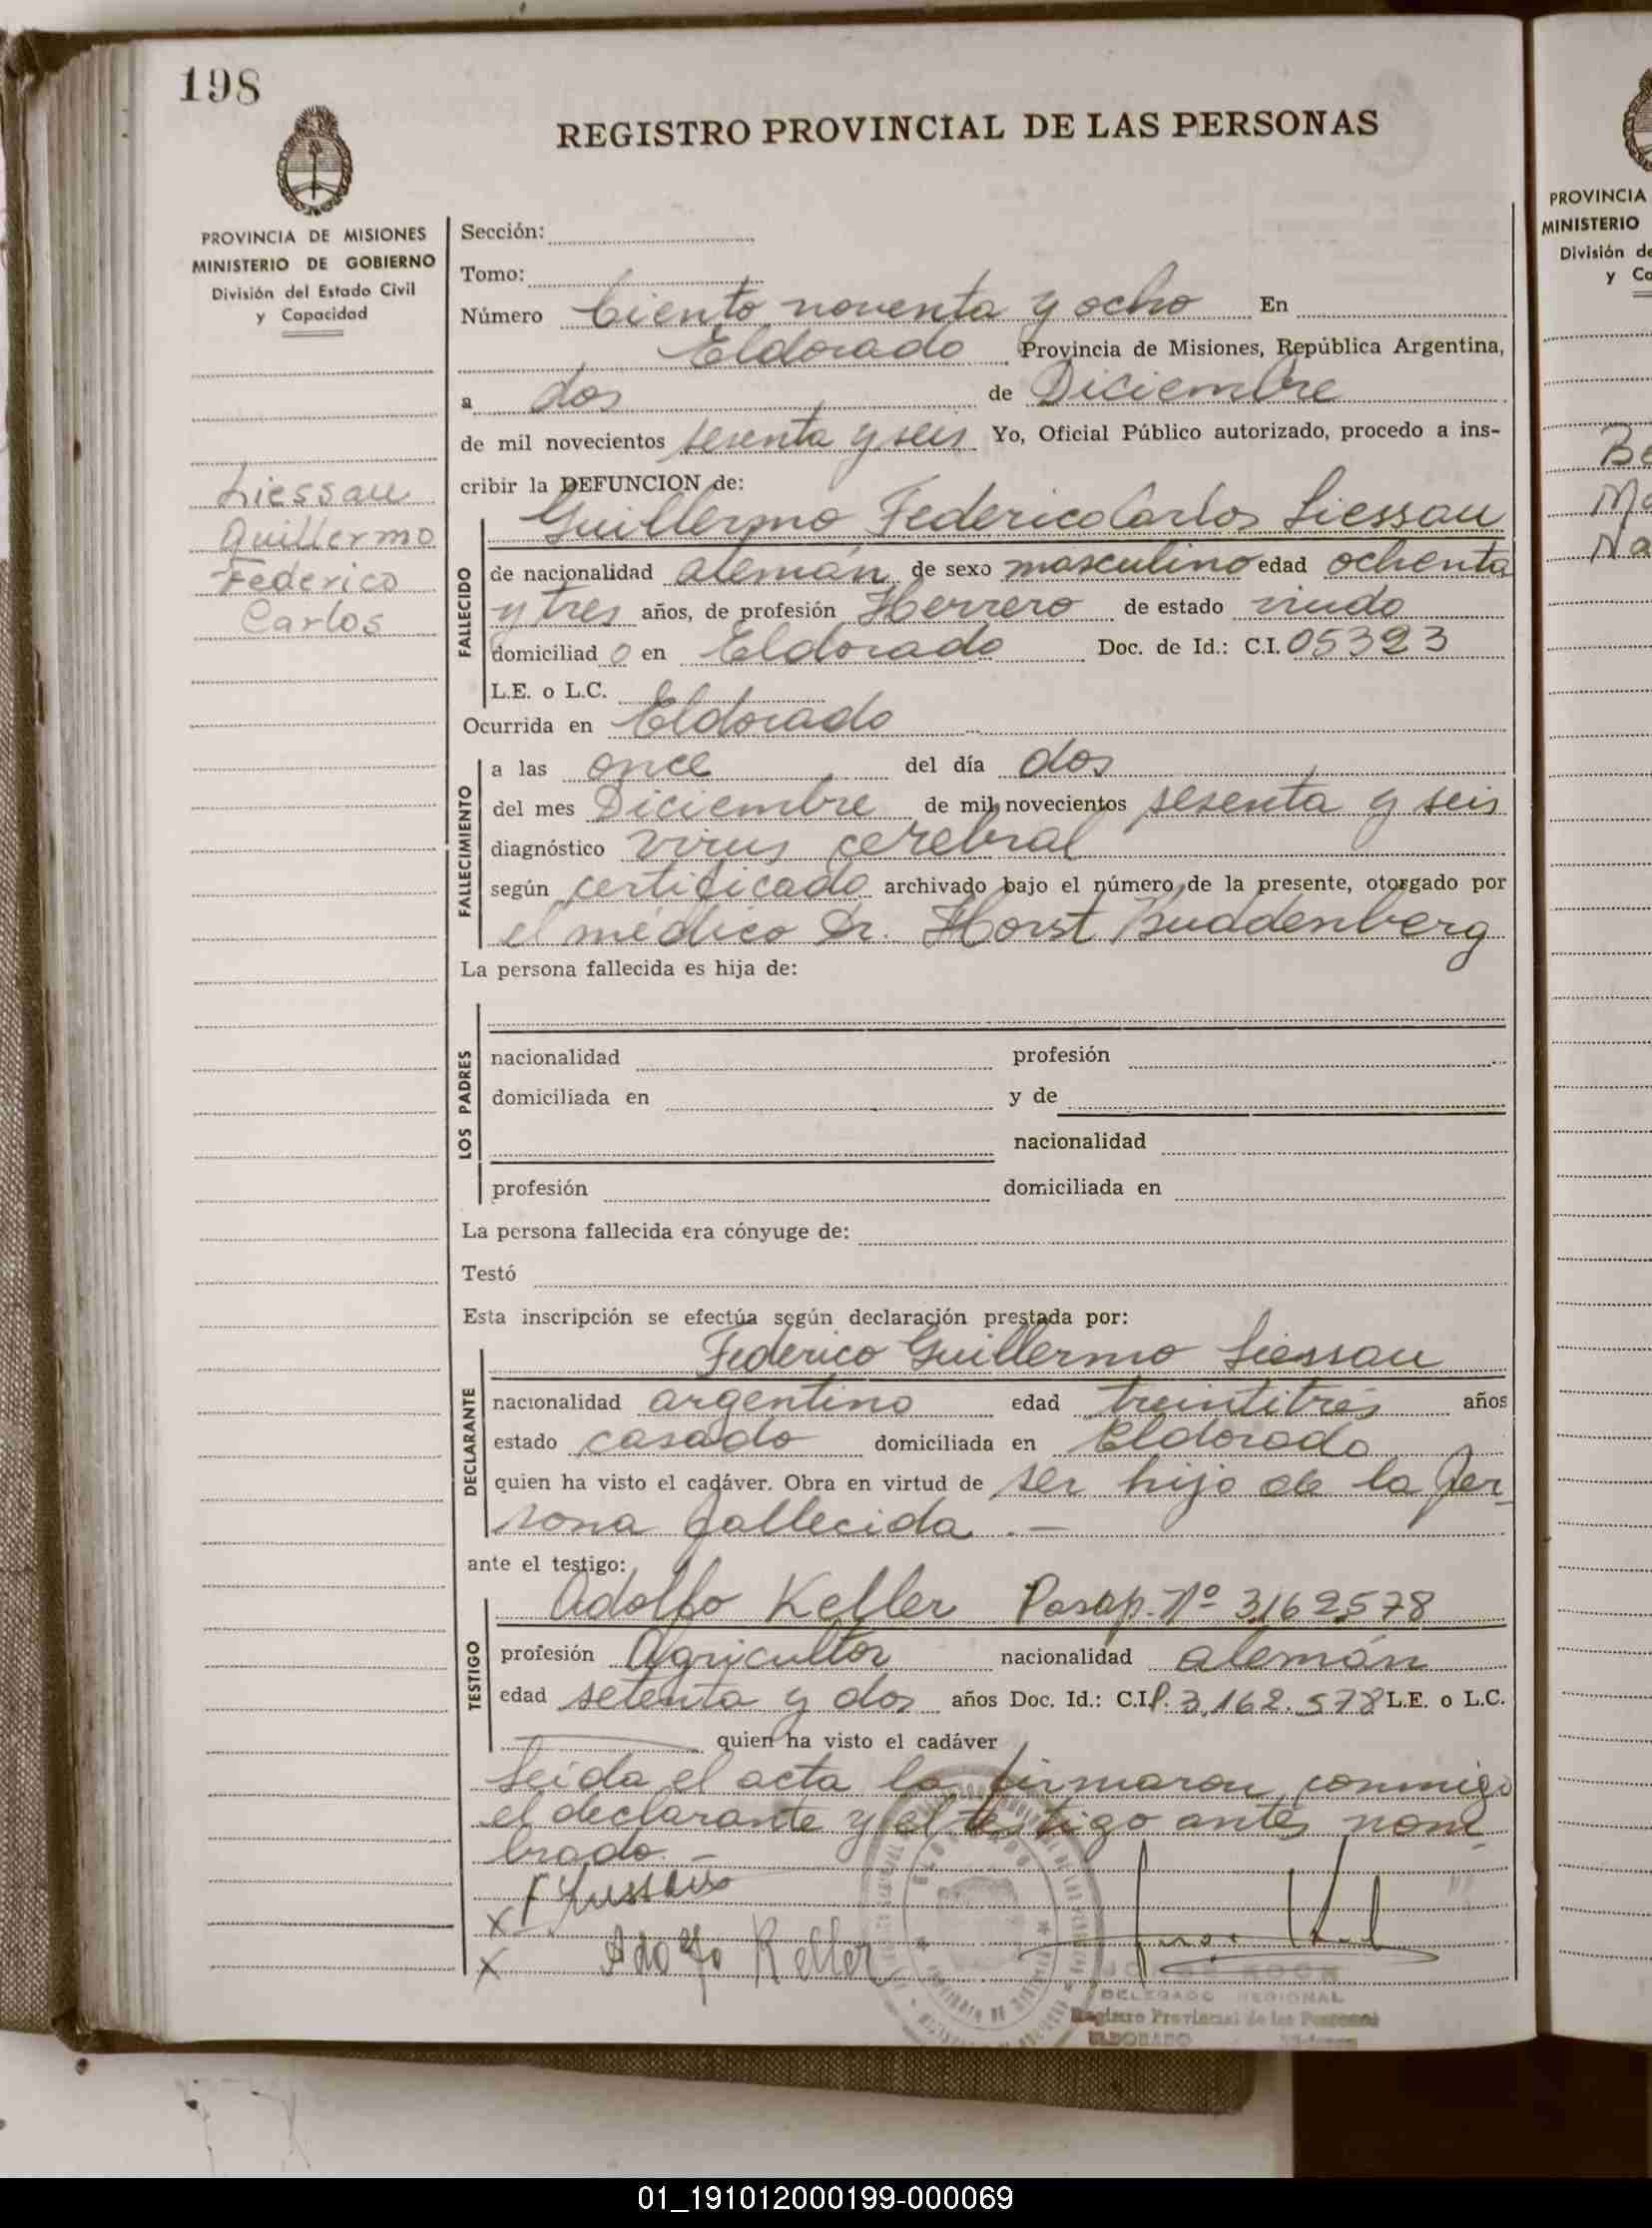 198
REGISTRO PROVINCIAL DE LAS PERSONAS
PROVINCIA DE MISIONES
MINISTERIO DE GOBIERNO
División del Estado Civil
y Capacidad
Liessau
Guillermo
Federico
Carlos
Sección:
Tomo:
Número Ciento noventa y ocho En
Eldorado Provincia de Misiones, República Argentina,
a dos de Diciembre
de mil novecientos sesenta y seis Yo, Oficial Público autorizado, procedo a ins-
cribir la DEFUNCION de:
FALLECIDO
Guillermo Federico Carlos Liessau
de nacionalidad alemán de sexo masculino edad ochenta
y tres años, de profesión Herrero de estado viudo
domiciliad o en Eldorado Doc. de Id.: C.I. 05323
L.E. o L.C.
Ocurrida en Eldorado
FALLECIMIENTO
a las once del día dos
del mes Diciembre de mil novecientos sesenta y seis
diagnóstico virus cerebral
según certificado archivado bajo el número de la presente, otorgado por
el médico Dr. Horst Buddenberg
La persona fallecida es hija de:
LOS PADRES
nacionalidad profesión
domiciliada en y de
nacionalidad
profesión domiciliada en
La persona fallecida era cónyuge de:
Testó
Esta inscripción se efectúa según declaración prestada por:
DECLARANTE
Federico Guillermo Liessau
nacionalidad argentino edad treintitrés años
estado casado domiciliada en Eldorado
quien ha visto el cadáver. Obra en virtud de ser hijo de la per-
sona fallecida.-
ante el testigo:
TESTIGO
Adolfo Keller Pasap. Nº 3162578
profesión Agricultor nacionalidad alemán
edad setenta y dos años Doc. Id.: C.I.P. 3.162.578 L.E. o L.C.
quien ha visto el cadáver
Leída el acta la firmaron conmigo
el declarante y el testigo antes nom-
brado.-
x F Liessau
x Adolfo Keller
DELEGADO REGIONAL
Registro Provincial de las Personas
ELDORADO Misiones
PROVINCIA
MINISTERIO
División de
y Ca
Be
Ma
Na
01_191012000199-000069